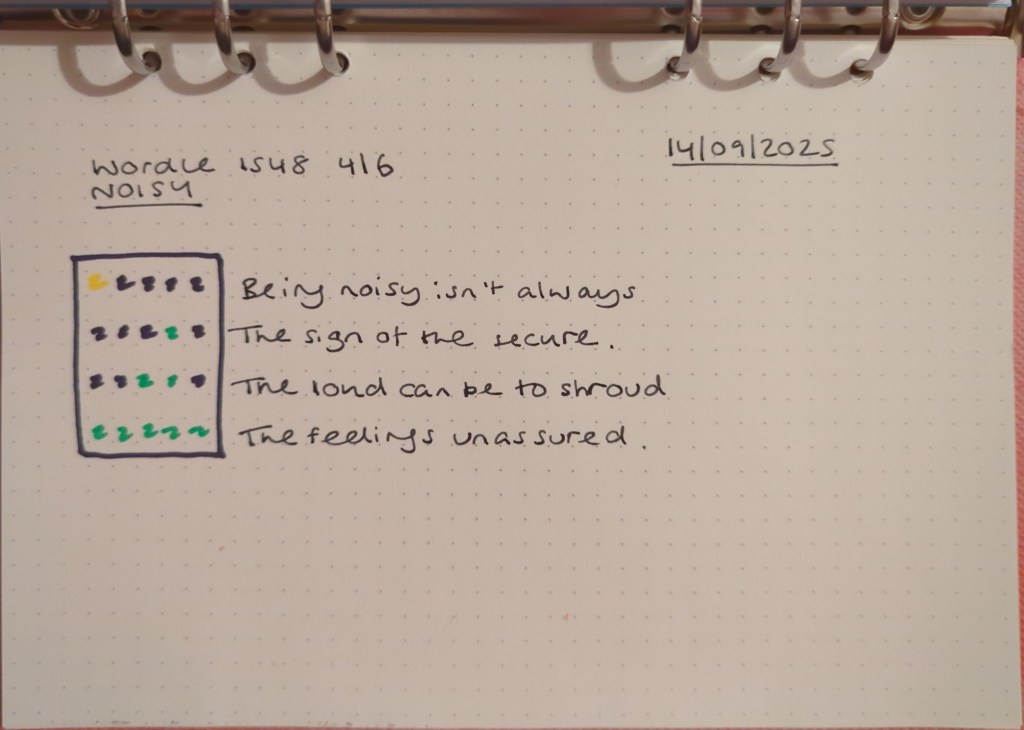 Wordle 1548 4/6
14/09/2025
NOISY
Being noisy isn't always
The sign of the secure.
The loud can be to shroud
The feelings unassured.